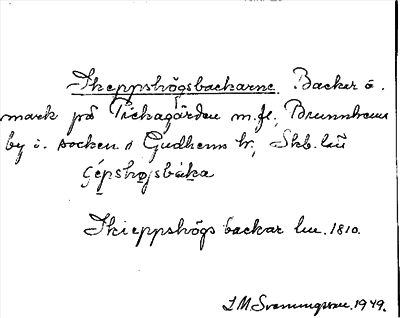 Skeppshögsbackarne. Backar å.
mark på Pickagården m.fl., Brunnhems
by o. socken, Gudhems hr, Skb. län
Skieppshögs backar lm. 1810.
J M Svenningsson. 1949.